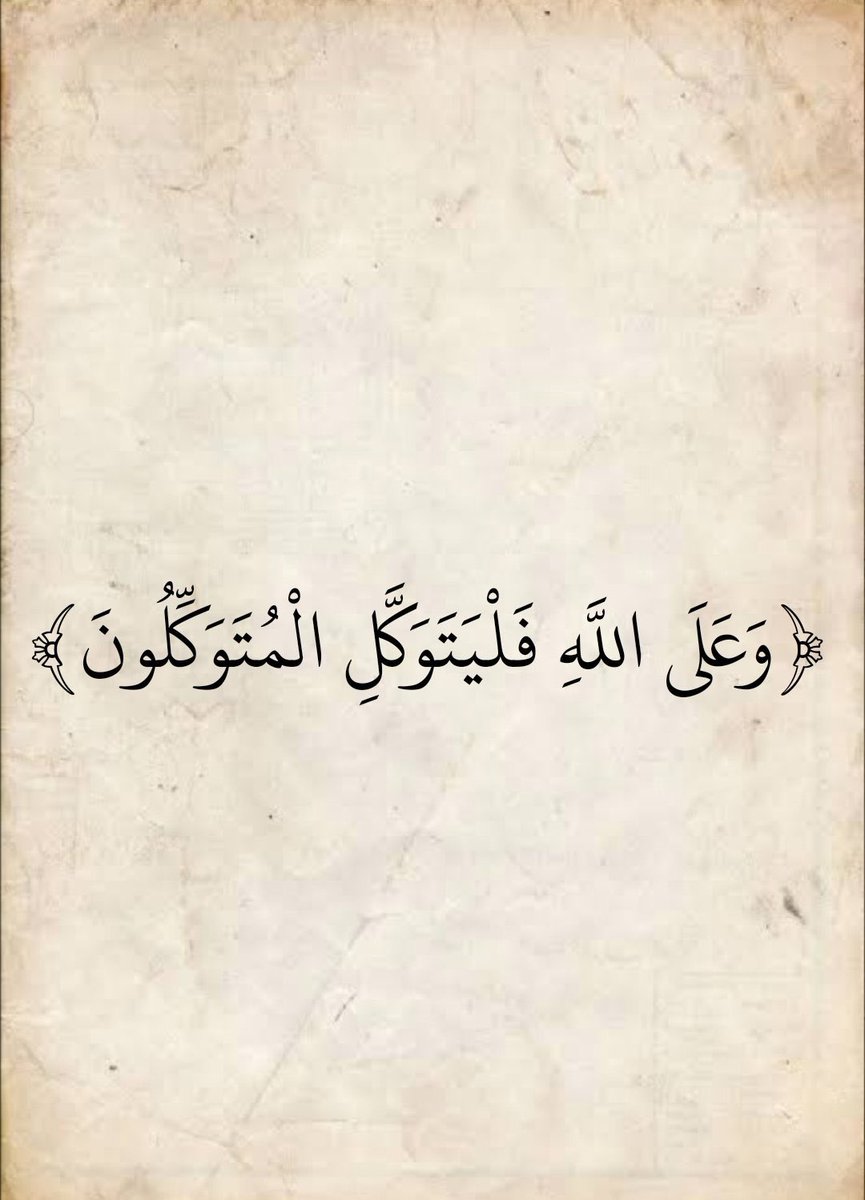 ﴿ وَعَلَى اللَّهِ فَلْيَتَوَكَّلِ الْمُتَوَكِّلُونَ ﴾